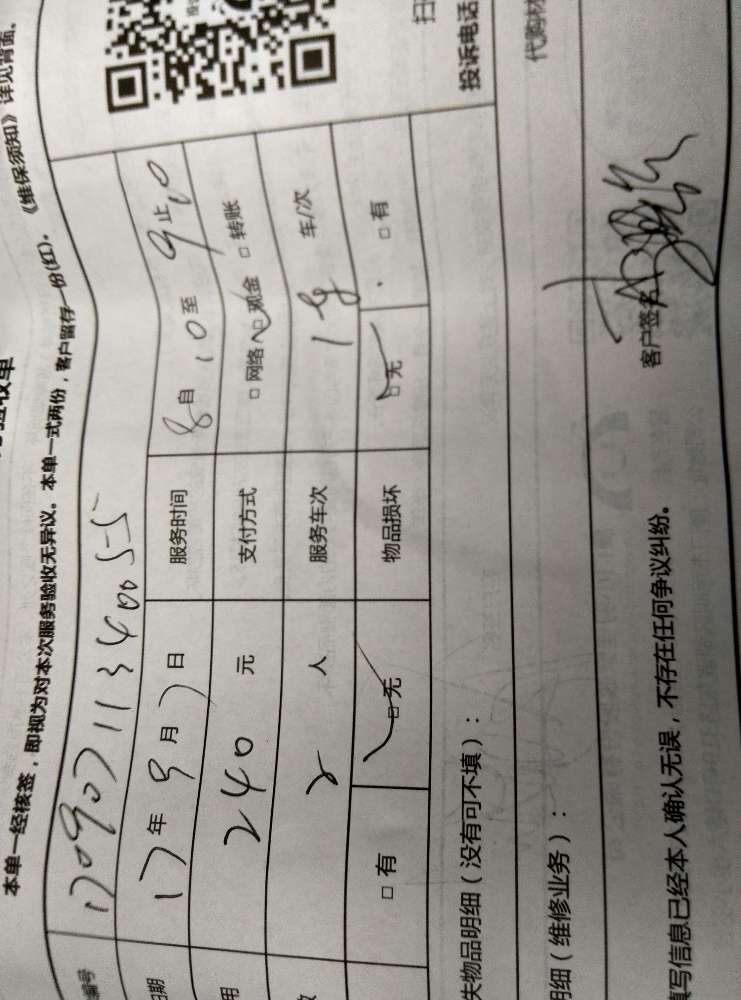 验收单
本单一经核签，即视为对本次服务验收无异议。本单一式两份，客户留存一份(红)。《维保须知》详见背面。
编号 17090711340055
日期 17年9月7日 服务时间 8自:10至9止:10
用 240元 支付方式 □网络 ✓□现金 □转账
数 2人 服务车次 1 车/次
□有 ✓□无 物品损坏 ✓□无 □有
失物品明细（没有可不填）： 投诉电话 扫
明细（维修业务）： 代购材
填写信息已经本人确认无误，不存在任何争议纠纷。 客户签名